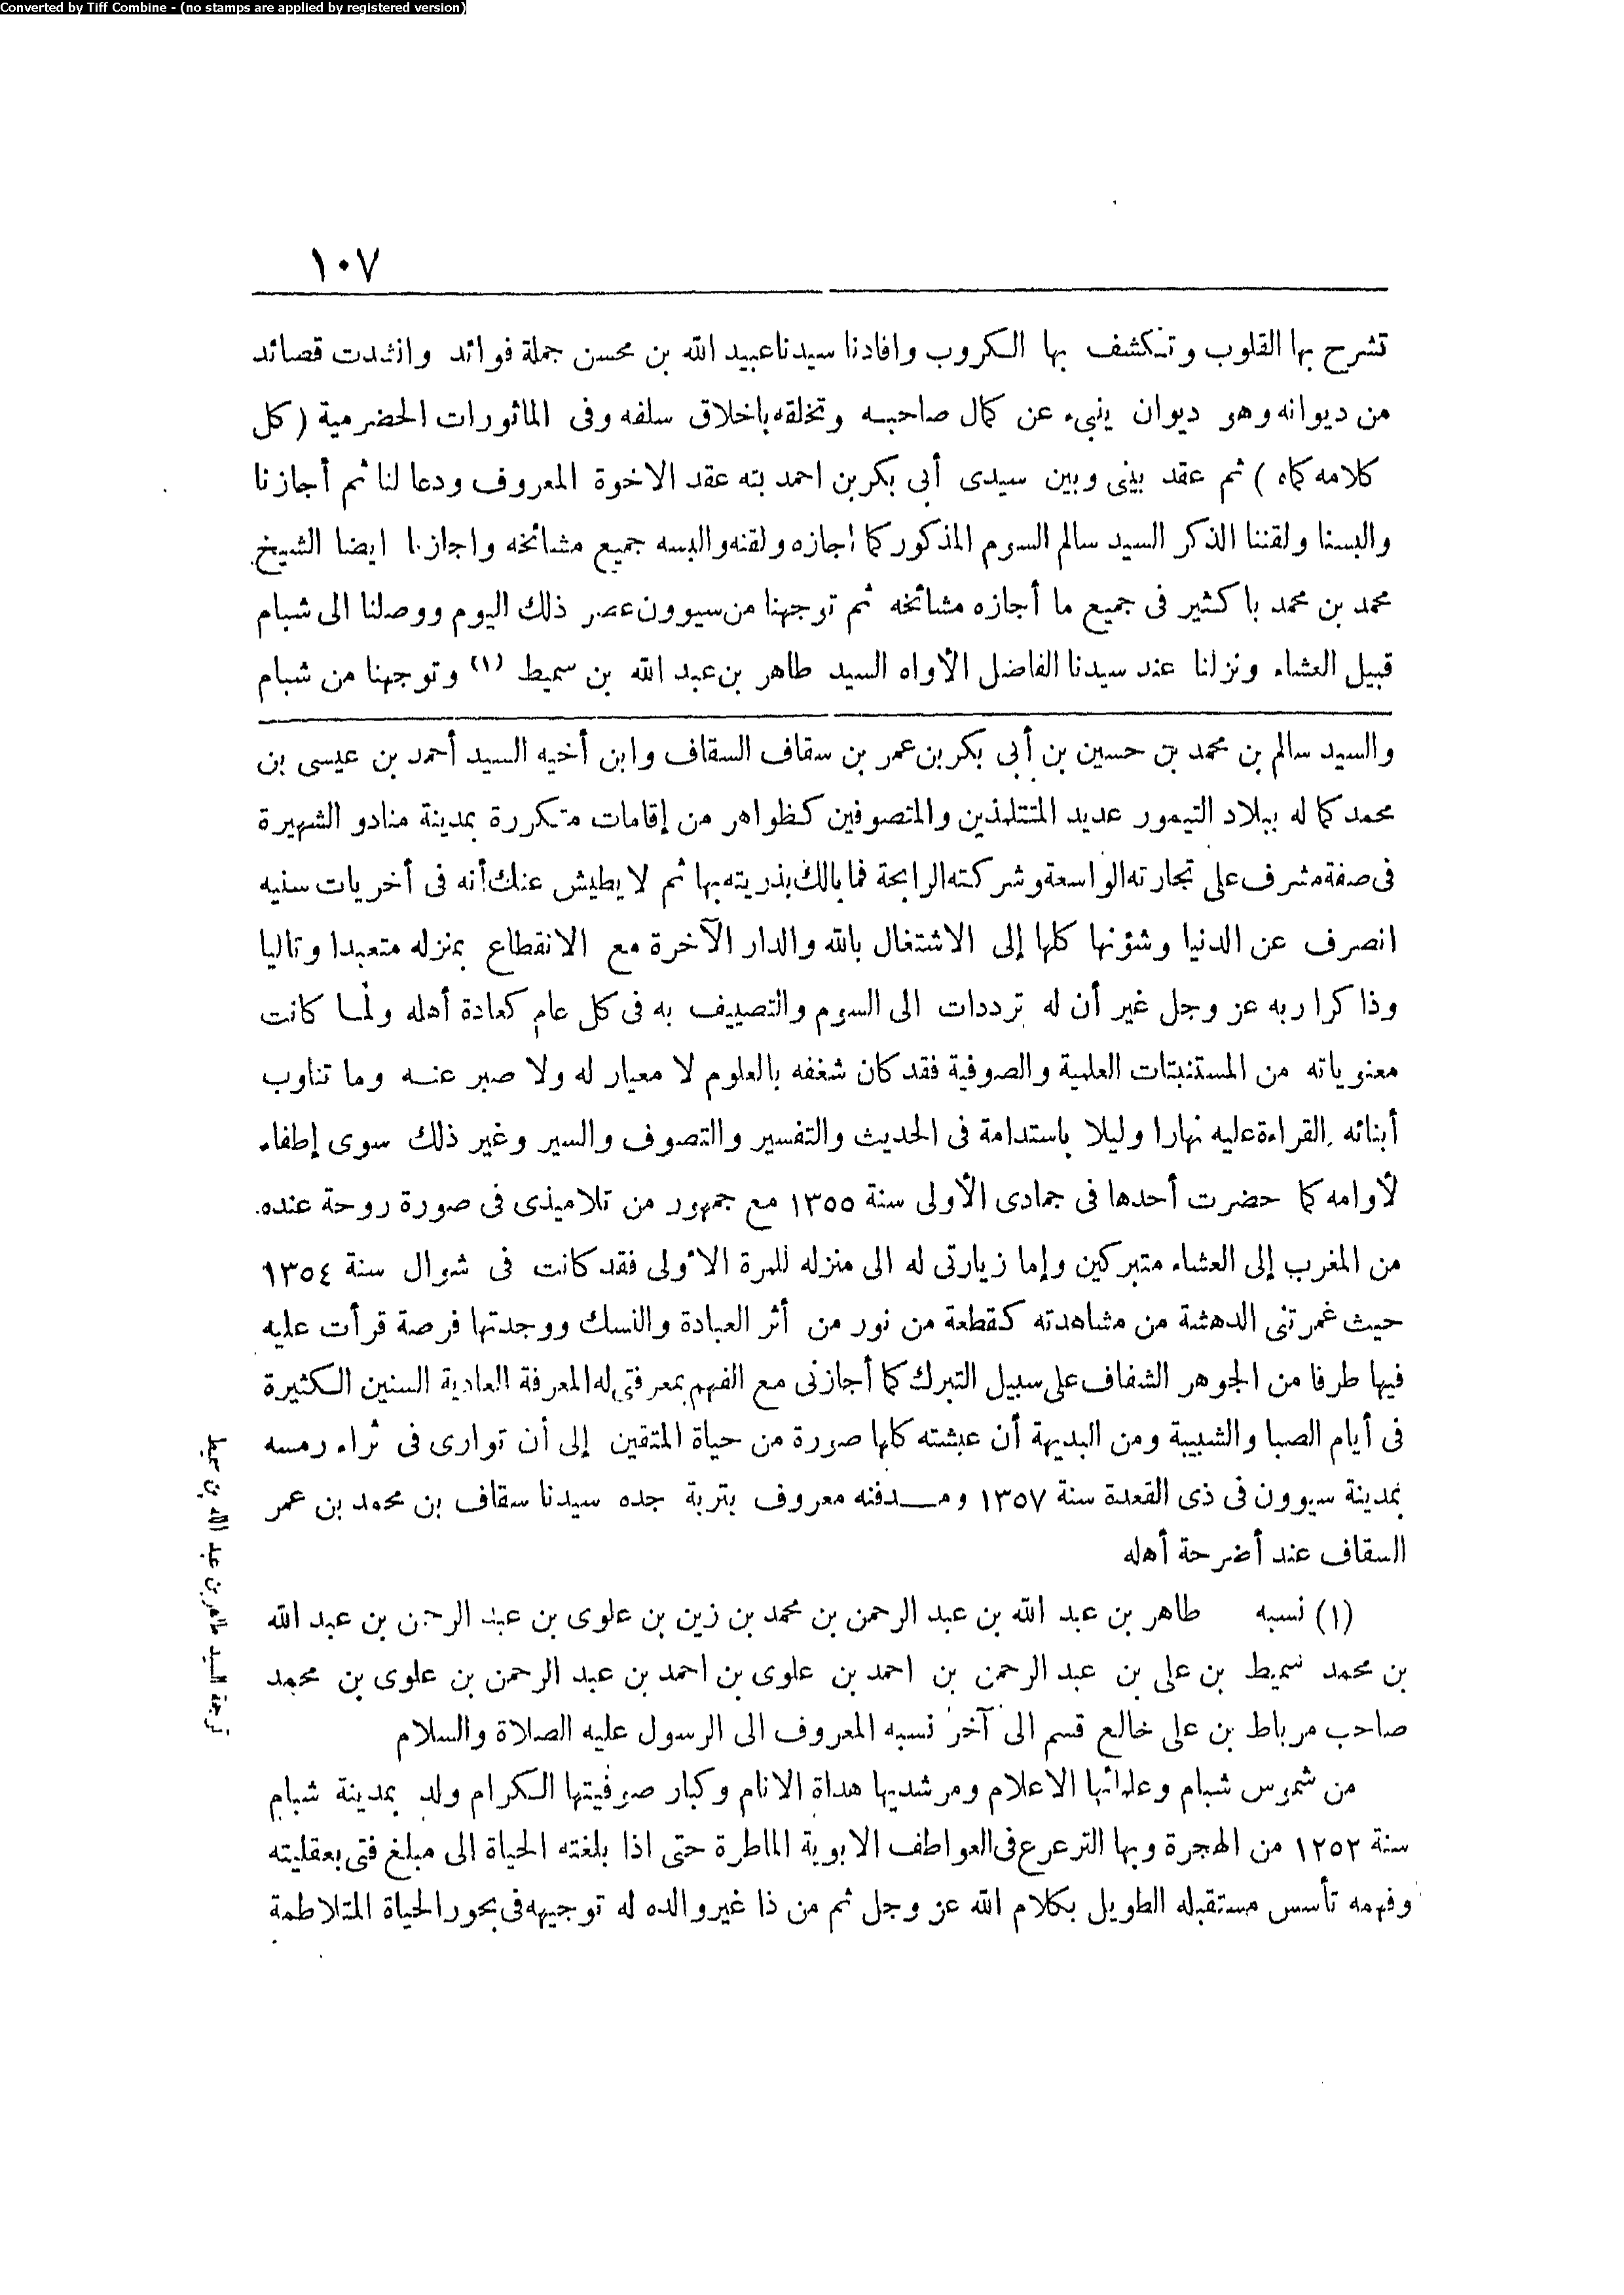 Converted by Tiff Combine - (no stamps are applied by registered version)
١٠٧
تشرح بها القلوب وتنكشف بها الكروب وافادنا سيدنا عبيد الله بن محسن جملة فوائد وانشدت قصائد
من ديوانه وهو ديوان ينبيء عن كمال صاحبه وتخلقه باخلاق سلفه وفى الماثورات الحضرمية (كل
كلامه كماه) ثم عقد بينى وبين سيدى أبى بكر بن احمد بته عقد الاخوة المعروف ودعا لنا ثم أجازنا
والبسنا ولقننا الذكر السيد سالم السوم المذكور كما اجازه ولقنه والبسه جميع مشائخه واجازنا ايضا الشيخ
محمد بن محمد با كثير فى جميع ما أجازه مشائخه ثم توجهنا من سيوون عصر ذلك اليوم ووصلنا الى شبام
قبيل العشاء ونزلنا عند سيدنا الفاضل الأواه السيد طاهر بن عبد الله بن سميط (١) وتوجهنا من شبام
والسيد سالم بن محمد بن حسين بن أبى بكر بن عمر بن سقاف السقاف وابن أخيه السيد أحمد بن عيسى بن
محمد كما له ببلاد التيمور عديد المتتلمذين والمتصوفين كظواهر من إقامات متكررة بمدينة منادو الشهيرة
فى صفة مشرف على تجارته الواسعة وشركته الرابحة فما بالك بذريته بها ثم لا يطيش عنك أنه فى أخريات سنيه
انصرف عن الدنيا وشؤنها كلها إلى الاشتغال بالله والدار الآخرة مع الانقطاع بمنزله متعبدا وتاليا
وذا كرا ربه عز وجل غير أن له ترددات الى السوم والتصييف به فى كل عام كعادة أهله ولما كانت
معنوياته من المستنبتات العلمية والصوفية فقد كان شغفه بالعلوم لا معيار له ولا صبر عنه وما تناوب
أبنائه القراءة عليه نهارا وليلا باستدامة فى الحديث والتفسير والتصوف والسير وغير ذلك سوى إطفاء
لأوامه كما حضرت أحدها فى جمادى الأولى سنة ١٣٥٥ مع جمهور من تلاميذى فى صورة روحة عنده
من المغرب إلى العشاء متبركين وإما زيارتى له الى منزله للمرة الأولى فقد كانت فى شوال سنة ١٣٥٤
حيث غمرتنى الدهشة من مشاهدته كقطعة من نور من أثر العبادة والنسك ووجدتها فرصة قرأت عليه
فيها طرفا من الجوهر الشفاف على سبيل التبرك كما أجازنى مع الفهم بمعرفتى له المعرفة العادية السنين الكثيرة
فى أيام الصبا والشبيبة ومن البديهة أن عيشته كلها صورة من حياة المتقين إلى أن توارى فى ثراء رمسه
بمدينة سيوون فى ذى القعدة سنة ١٣٥٧ ومدفنه معروف بتربة جده سيدنا سقاف بن محمد بن عمر
السقاف عند أضرحة أهله
(١) نسبه طاهر بن عبد الله بن عبد الرحمن بن محمد بن زين بن علوى بن عبد الرحمن بن عبد الله
بن محمد سميط بن على بن عبد الرحمن بن احمد بن علوى بن احمد بن عبد الرحمن بن علوى بن محمد
صاحب مرباط بن على خالع قسم الى آخر نسبه المعروف الى الرسول عليه الصلاة والسلام
من شموس شبام وعلمائها الاعلام ومرشديها هداة الانام وكبار صوفيتها الكرام ولد بمدينة شبام
سنة ١٢٥٢ من الهجرة وبها الترعرع فى العواطف الابوية الماطرة حتى اذا بلغته الحياة الى مبلغ فتى بعقليته
وفهمه تأسس مستقبله الطويل بكلام الله عز وجل ثم من ذا غير والده له توجيهه فى بحور الحياة المتلاطمة
ترجمة السيد طاهر بن عبد الله بن سميط